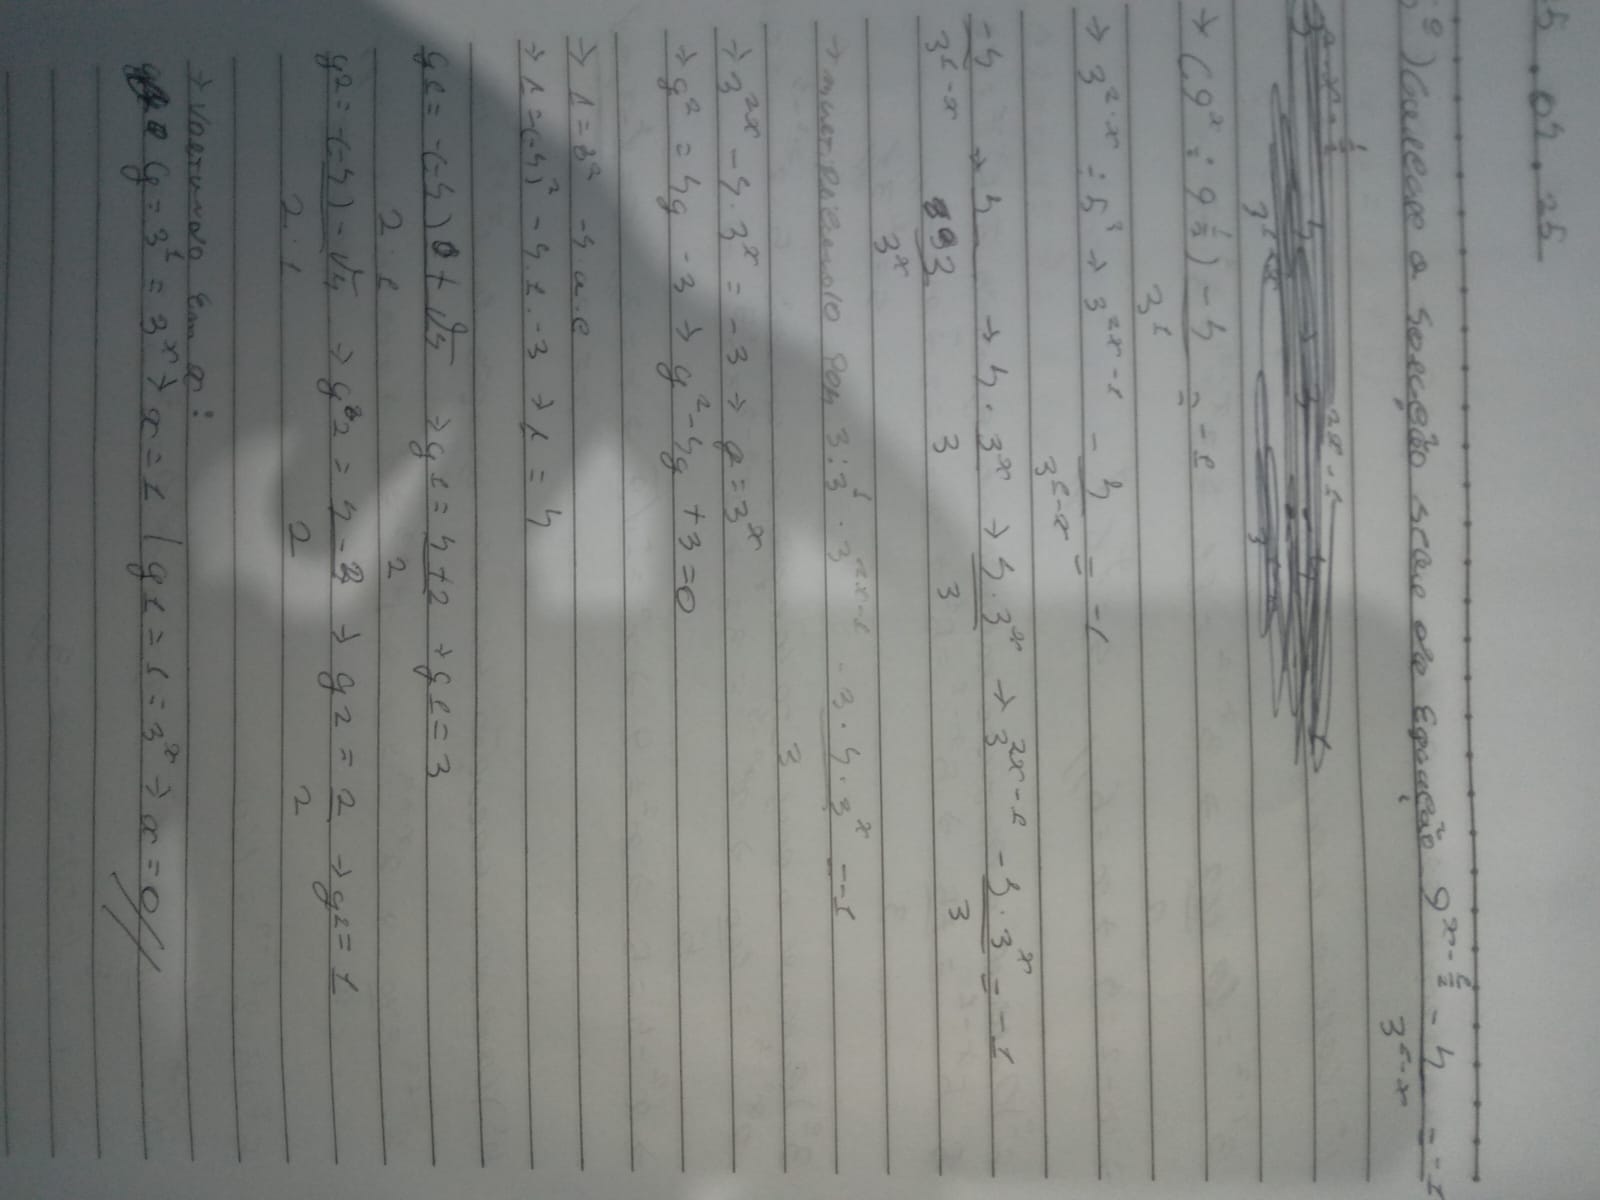 5 . 04 . 25
5º) Calcule a Solução da Equação 9^{x-\frac{1}{2}} - \frac{4}{3^{1-x}} = -1
→ (9^x ÷ 9^{\frac{1}{2}}) - \frac{4}{3^1} = -1
→ 3^{2·x} ÷ 5^3 → 3^{2x-1} - \frac{4}{3^{1-x}} = -1
\frac{-4}{3^{1-x}} → \frac{4}{\frac{3}{3^x}} → 4 · \frac{3^x}{3} → \frac{4·3^x}{3} → 3^{2x-1} - \frac{4·3^x}{3} = -1
→ multiplicando por 3: 3^1 · 3^{2x-1} - \frac{3·4·3^x}{3} = -1
→ 3^{2x} - 4·3^x = -3 → y = 3^x
→ y^2 = 4y - 3 → y^2 - 4y + 3 = 0
→ 1 = 3^2 - 4·a·c
→ 1 = (-4)^2 - 4·1·-3 → 1 = 4
y1 = \frac{-(-4) + √4}{2·1} → y1 = \frac{4+2}{2} → y1 = 3
y2 = \frac{-(-4) - √4}{2·1} → y2 = \frac{4-2}{2} → y2 = \frac{2}{2} → y2 = 1
→ Voltando Em x:
y = 3^1 = 3^x → x = 1 | y1 = 1 = 3^x → x = 0//